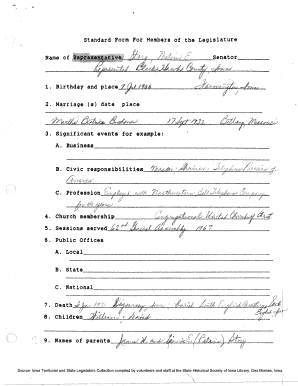 Standard Form For Members of the Legislature
Name of Representative Story, Nelson E. Senator
Represented Black Hawk County, Iowa
1. Birthday and place 9 1906 Farmington, Iowa
2. Marriage (s) date place
17 Sept 1932 Bethany, Missouri
3. Significant events for example:
A. Business
B. Civic responsibilities Mason - Shriner - Telephone Pioneers of
America
C. Profession Employed with Northwestern Bell Telephone Company
for years
4. Church membership Congregational United Church of Christ
5. Sessions served 62nd General Assembly 1967
6. Public Offices
A. Local
B. State
C. National
7. Death
8. Children William - David
9. Names of parents Story
Source: Iowa Territorial and State Legislators Collection compiled by volunteers and staff at the State Historical Society of Iowa Library, Des Moines, Iowa.